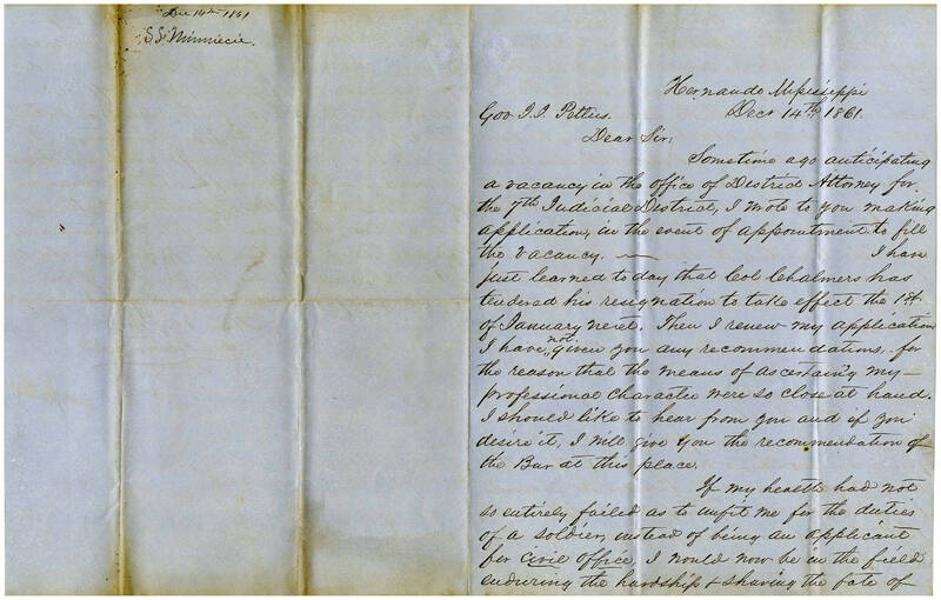 Dec 14th 1861
S.S.
Hernando Mississippi
Gov J.J. Pettus. Decr 14th 1861.
Dear Sir;
Sometime ago anticipating
a vacancy in the office of District Attorney for
the 7th Judicial District, I wrote to you making
application, in the event of appointment to fill
the vacancy. — I have
just learned to day that Col Chalmers has
tendered his resignation to take effect the 1st
of January next. Then I renew my application
I have not given you any recommendations, for
the reason that the means of ascertaing my —
professional character were so close at hand.
I should like to hear from you and if you
desire it, I will give you the recommendation of
the Bar at this place.
If my health had not
so entirely failed as to unfit me for the duties
of a soldier, instead of being an applicant
for civil office, I would now be in the field
enduring the hardship & sharing the fate of